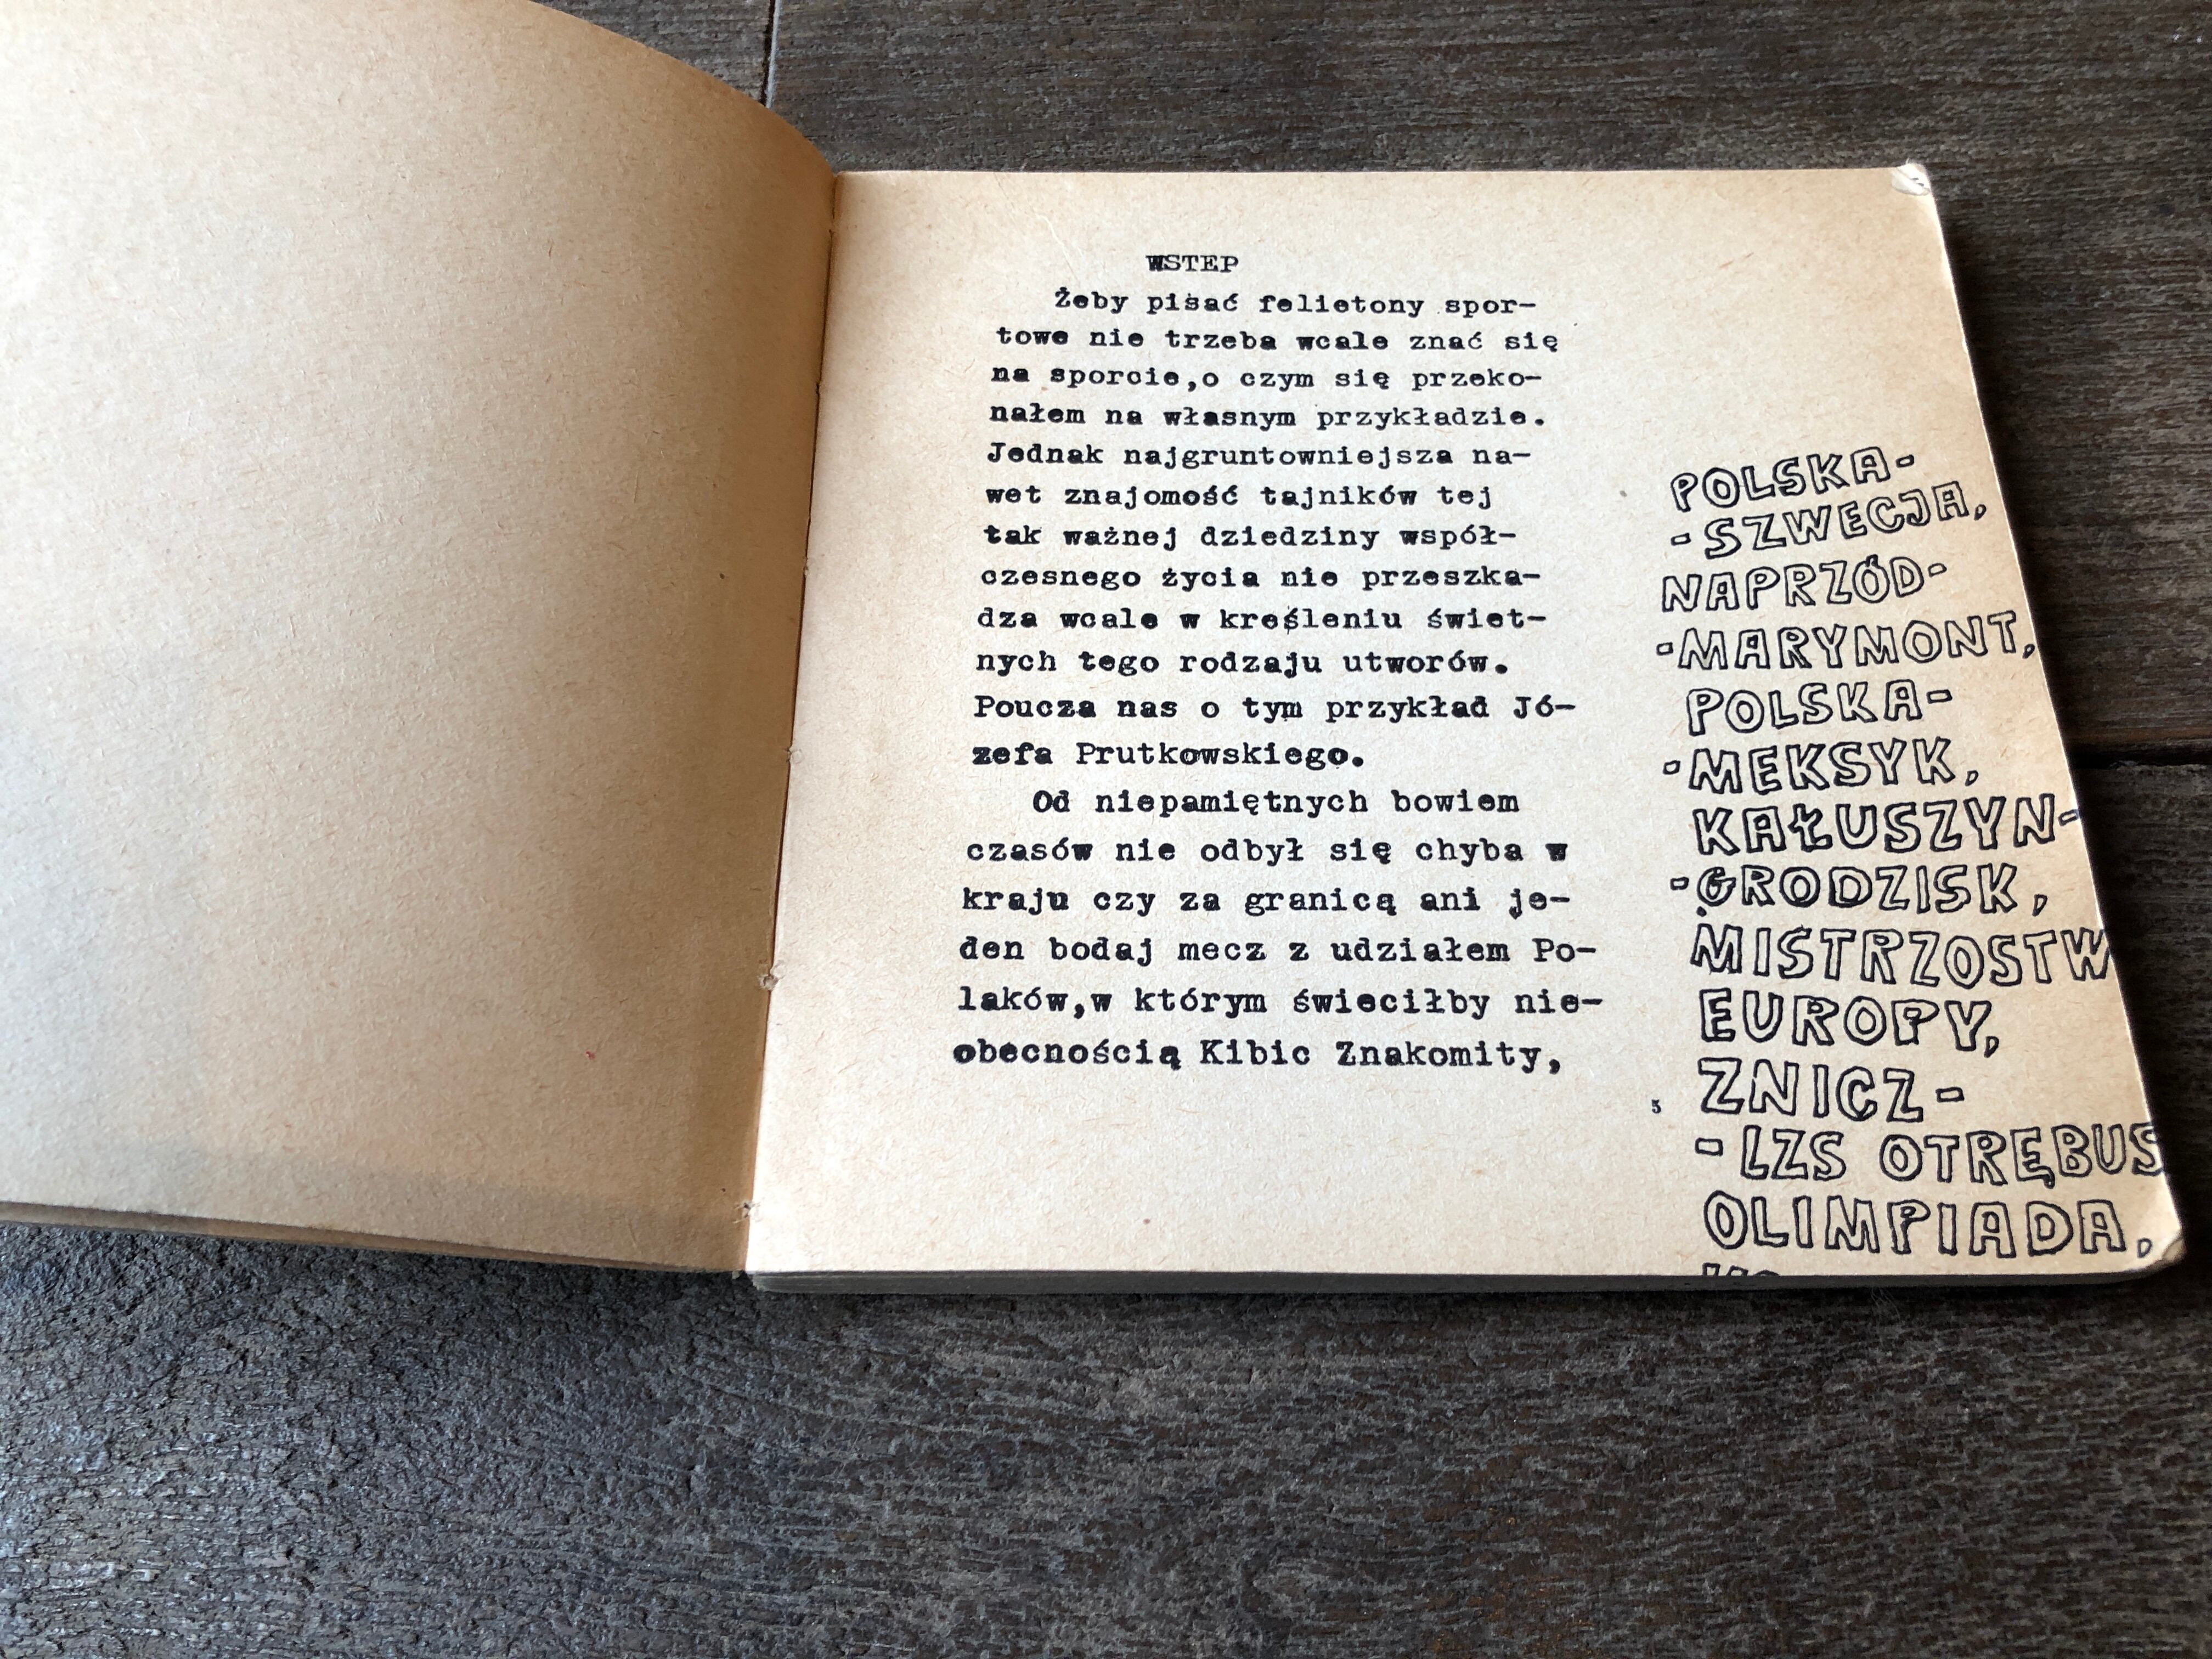 WSTEP
Żeby pisać felietony spor-
towe nie trzeba wcale znać się
na sporcie,o czym się przeko-
nałem na własnym przykładzie.
Jednak najgruntowniejsza na-
wet znajomość tajników tej
tak ważnej dziedziny współ-
czesnego życia nie przeszka-
dza wcale w kreśleniu świet-
nych tego rodzaju utworów.
Poucza nas o tym przykład Jó-
zefa Prutkowskiego.
Od niepamiętnych bowiem
czasów nie odbył się chyba w
kraju czy za granicą ani je-
den bodaj mecz z udziałem Po-
laków,w którym świeciłby nie-
obecnością Kibic Znakomity,
5
POLSKA-
-SZWECJA,
NAPRZÓD-
-MARYMONT,
POLSKA-
-MEKSYK,
KAŁUSZYN-
-GRODZISK,
MISTRZOSTW
EUROPY,
ZNICZ-
-LZS OTRĘBUS
OLIMPIADA,